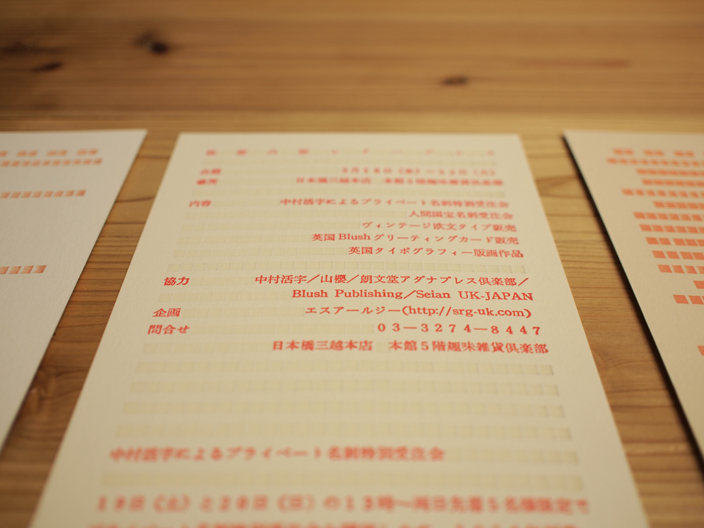 企画
場所 日本橋三越本店 本館5階趣味雑貨倶楽部
内容 中村活字によるプライベート名刺特別受注会
人間国宝名刺受注会
ヴィンテージ欧文タイプ販売
英国Blushグリーティングカード販売
英国タイポグラフィー版画作品
協力 中村活字／山櫻／朗文堂アダナプレス倶楽部／
Blush Publishing／Seian UK-JAPAN
企画 エスアールジー(http://srg-uk.com)
問合せ 03—3274—8447
日本橋三越本店 本館5階趣味雑貨倶楽部
中村活字によるプライベート名刺特別受注会
19日《土》と20日《日》の13時〜両日先着5名様限定で